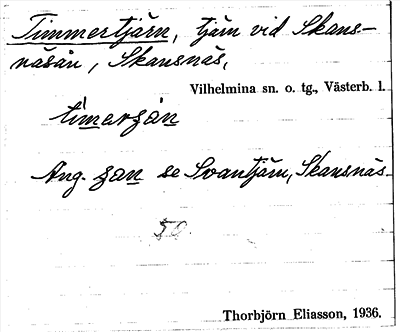 Timmertjärn, tjärn vid Skans-
näsån, Skansnäs,
Vilhelmina sn. o. tg., Västerb. l.
Ang. se Svantjärn, Skansnäs
50
Thorbjörn Eliasson, 1936.